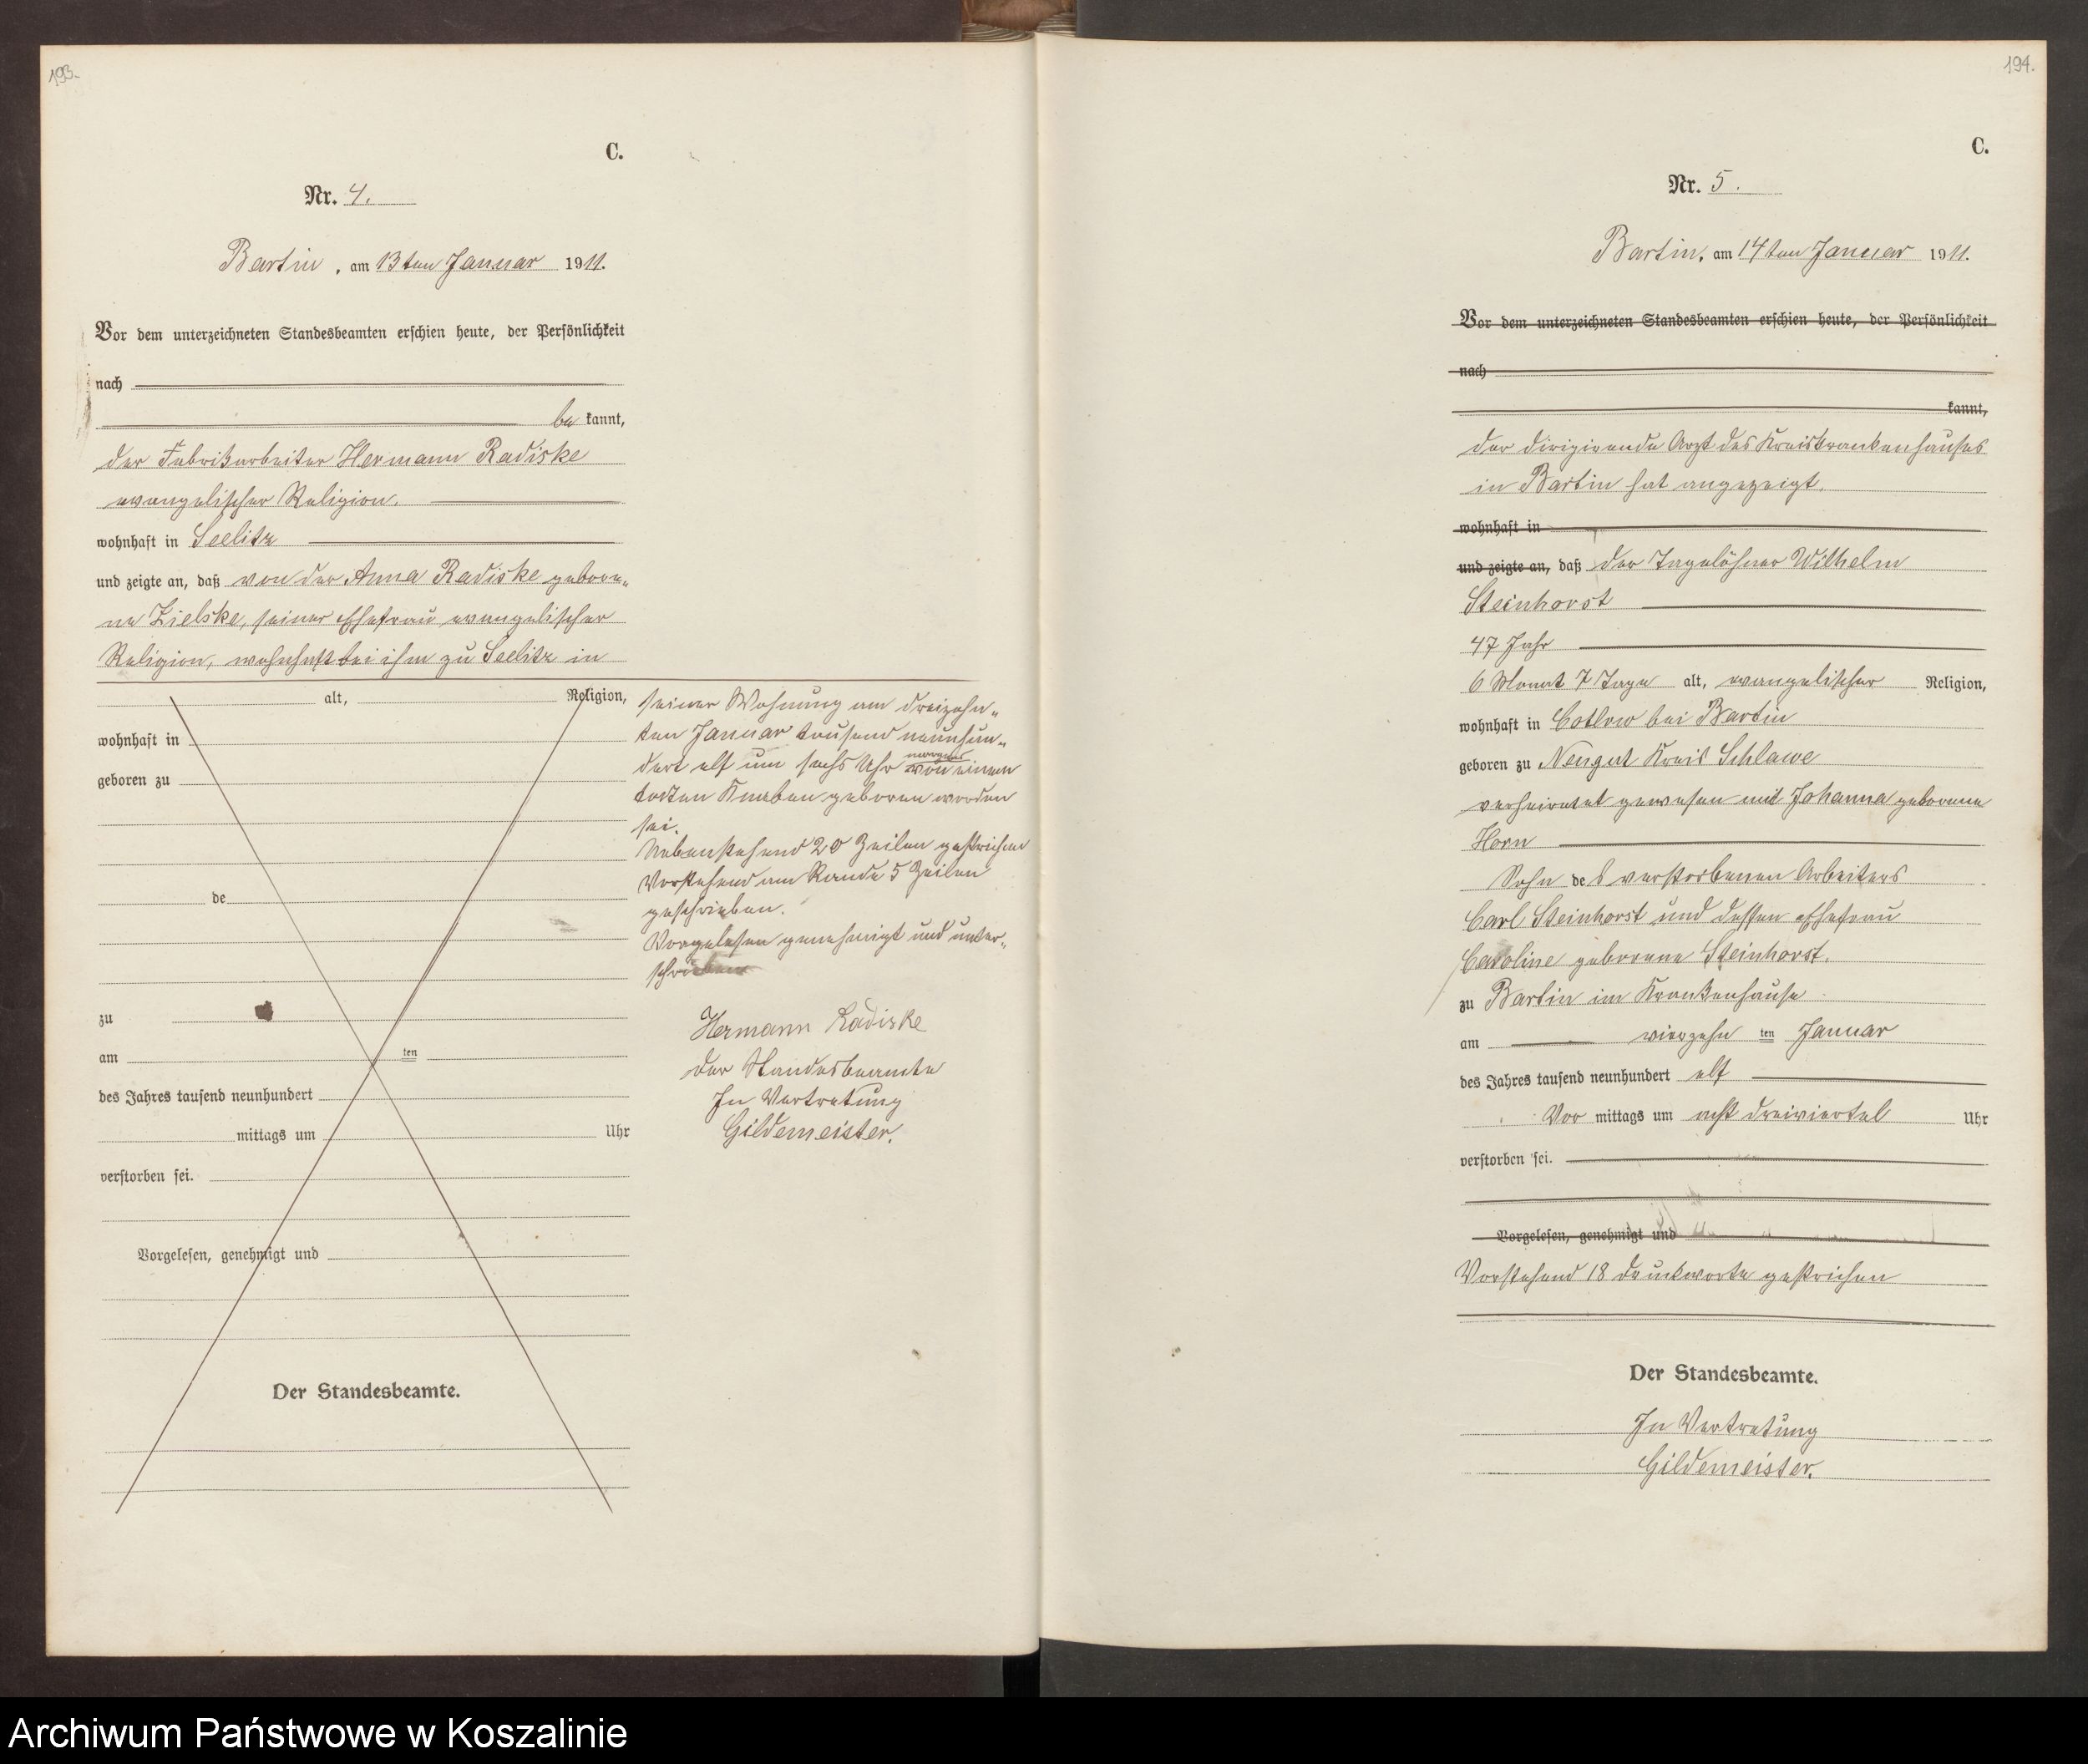 193.
C.
Nr. 4.
Bartin, am 13ten Januar 1911.
Vor dem unterzeichneten Standesbeamten erschien heute, der Persönlichkeit
nach
be kannt,
der Fabrikarbeiter Hermann Radiske
evangelischer Religion.
wohnhaft in Seelitz
und zeigte an, daß von der Anna Radiske gebore„
ne Zielske, seiner Ehefrau evangelischer
Religion, wohnhaft bei ihm zu Seelitz in
alt, Religion,
wohnhaft in
geboren zu
de
zu
am ten
des Jahres tausend neunhundert
mittags um Uhr
verstorben sei.
Vorgelesen, genehmigt und
Der Standesbeamte.
seiner Wohnung am dreizehn„
ten Januar tausend neunhun„
dert elf um sechs Uhr morgens von einem
toten Knaben geboren worden
sei.
Nebenstehend 20 Zeilen gestrichen
Vorstehend am Rande 5 Zeilen
geschrieben.
Vorgelesen genehmigt und unter„
schrieben
Hermann Radiske
Der Standesbeamte
In Vertretung
Gildemeister.
194.
C.
Nr. 5.
Bartin, am 14ten Januar 1911.
Vor dem unterzeichneten Standesbeamten erschien heute, der Persönlichkeit
nach
kannt,
der dirigierende Arzt des Kreiskrankenhauses
in Bartin hat angezeigt,
wohnhaft in
und zeigte an, daß der Tagelöhner Wilhelm
Steinhorst
47 Jahr
6 Monat 7 Tage alt, evangelischer Religion,
wohnhaft in Cotlow bei Bartin
geboren zu Neugut Kreis Schlawe
verheiratet gewesen mit Johanna geborene
Horn
Sohn des verstorbenen Arbeiters
Carl Steinhorst und dessen Ehefrau
Caroline geborene Steinhorst.
zu Bartin im Krankenhause
am vierzehn ten Januar
des Jahres tausend neunhundert elf
Vor mittags um acht dreiviertel Uhr
verstorben sei.
Vorgelesen, genehmigt und
Vorstehend 18 Druckworte gestrichen
Der Standesbeamte.
In Vertretung
Gildemeister.
Archiwum Państwowe w Koszalinie